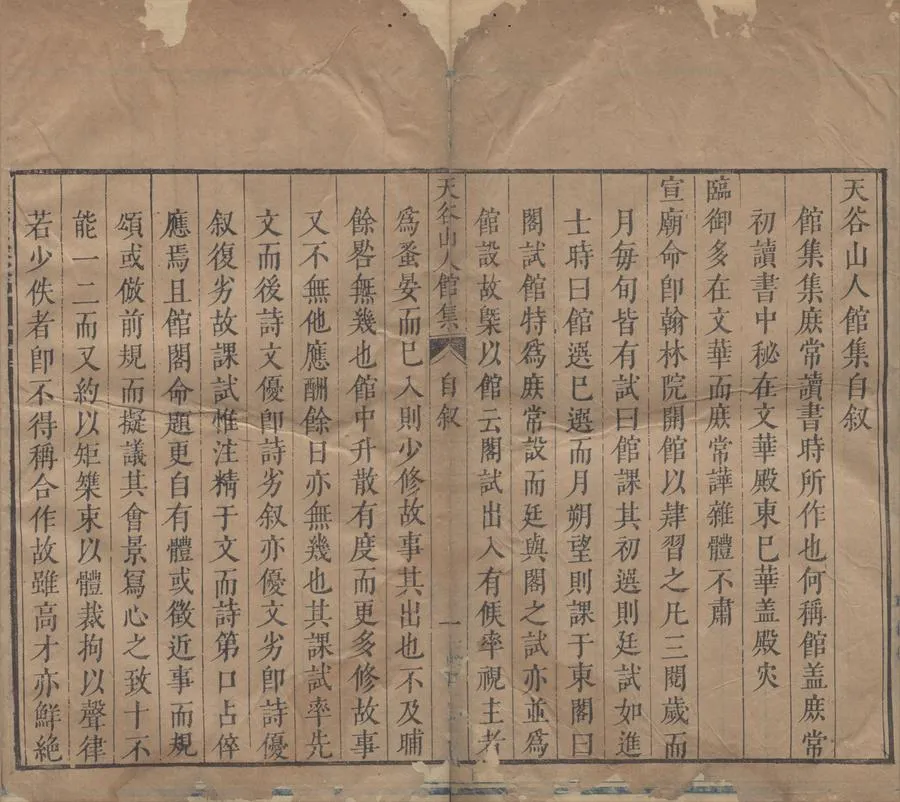 天谷山人館集自叙
館集集庶常讀書時所作也何稱館盖庶常
初讀書中秘在文華殿東巳華盖殿灾
臨御多在文華而庶常譁雜體不肅
宣廟命卽翰林院開館以肄習之凡三閱歲而
月每旬皆有試曰館課其初選則廷試如進
士時曰館選巳選而月朔望則課于東閣曰
閣試館特爲庶常設而廷與閣之試亦並爲
館設故槩以館云閣試出入有候率視主者
天谷山人館集 自叙 一
爲蚤晏而巳入則少修故事其出也不及晡
餘晷無幾也館中升散有度而更多修故事
又不無他應酬餘日亦無幾也其課試率先
文而後詩文優卽詩劣叙亦優文劣卽詩優
叙復劣故課試惟注精于文而詩第口占倅
應焉且館閣命題更自有體或徵近事而規
頌或倣前規而擬議其會景寫心之致十不
能一二而又約以矩篗束以體裁拘以聲律
若少佚者卽不得稱合作故雖高才亦鮮絶